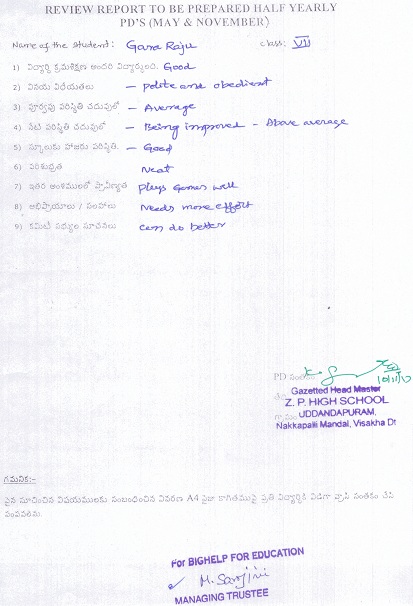 REVIEW REPORT TO BE PREPARED HALF YEARLY
PD'S (MAY & NOVEMBER)
Name of the Student: Gana Raju Class: VII
1) విద్యార్థి క్రమశిక్షణ అందరి విద్యార్థులంది. Good
2) వినయ విధేయతలు - polite and obedient
3) పూర్వపు పరిస్థితి చదువులో - Average
4) నేటి పరిస్థితి చదువులో - Being improved - Above average
5) స్కూలుకు హాజరు పరిస్థితి. - Good
6) పరిశుభ్రత Neat
7) ఇతర అంశములలో ప్రావీణ్యత plays Games well
8) అభిప్రాయాలు / సలహాలు Needs more effort
9) కమిటీ సభ్యుల సూచనలు can do better
PD సంతకం
Gazetted Head Master
Z. P. HIGH SCHOOL
గ్రామం UDDANDAPURAM,
Nakkapalli Mandal, Visakha Dt
గమనిక:-
పైన సూచించిన విషయములకు సంబంధించిన వివరణ A4 సైజు కాగితముపై ప్రతి విద్యార్థికి విడిగా వ్రాసి సంతకం చేసి
పంపవలెను.
For BIGHELP FOR EDUCATION
M. Sarojini
MANAGING TRUSTEE